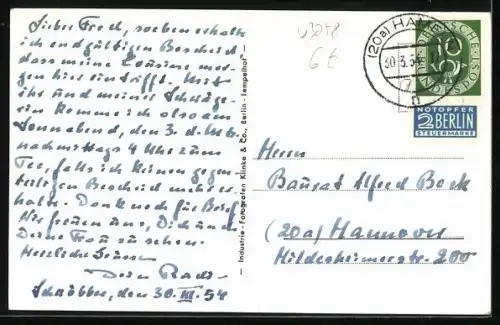 Lieber Fred, soeben erhalte
ich endgültigen Bescheid
dass meine Cousine mor-
gen hier eintrifft. Mit
ihr und meiner Schwäge-
rin komme ich also am
Sonnabend, den 3. d. Mts.
nachmittags 4 Uhr zum
Tee, falls ich keinen gegen-
teiligen Bescheid mehr er-
halte. Dank noch für Brief
Wir freuen uns, Dich und
Deine Frau zu sehen.
Herzliche Grüsse
Dein
den 30. III. 54
Industrie-Fotografen Klinke & Co., Berlin-Tempelhof
(20a) HAN
30.3.54
DEUTSCHE
NOTOPFER
2 BERLIN
STEUERMARKE
Herrn
Baurat Alfred Bock
(20a) Hannover
Hildesheimerstr. 200